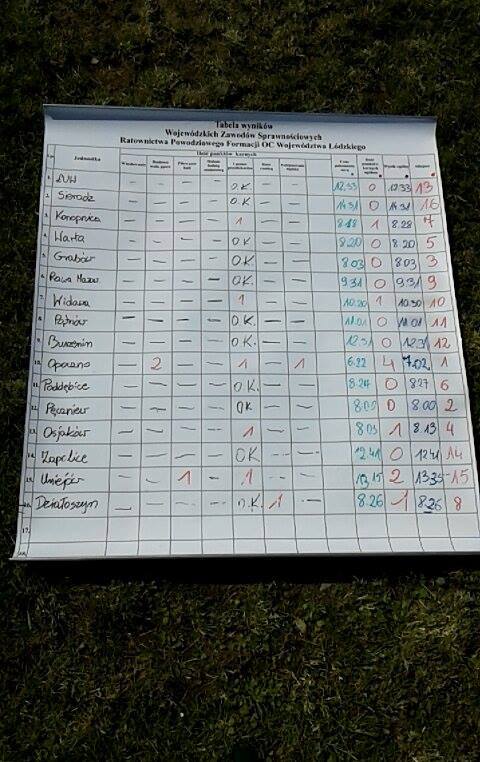 Tabela wyników
Wojewódzkich Zawodów Sprawnościowych
Ratownictwa Powodziowego Formacji OC Województwa Łódzkiego
Ilość punktów karnych
L.p. Jednostka
1. — — — — O.K. — — 12.33 0 12.33 13
2. Sieradz — — — — O.K. — — 14.31 0 14.31 16
3. Konopnica — — — — 1 — — 8.18 1 8.28 7
4. Warta — — — — OK — — 8.20 0 8.20 5
5. Grabów — — — — OK. — — 8.03 0 8.03 3
6. Rawa Mazow. — — — — OK. — — 9.31 0 9.31 9
7. Widawa — — — — 1 — — 10.20 1 10.30 10
8. — — — — OK. — — 11.01 0 11.01 11
9. Burzenin — — — — OK. — — 12.31 0 12.31 12
10. Opoczno — 2 — — 1 — 1 6.22 4 7.02 1
11. Poddębice — — — — O.K. — — 8.27 0 8.27 6
12. Pęczniew — — — — OK — — 8.00 0 8.00 2
13. Osjaków — — — — 1 — — 8.03 1 8.13 4
14. Zapolice — — — — OK — — 12.41 0 12.41 14
15. Uniejów — — 1 — 1 — — 13.15 2 13.35 15
16. Działoszyn — — — — O.K. 1 — 8.26 1 8.26 8
17.
18.